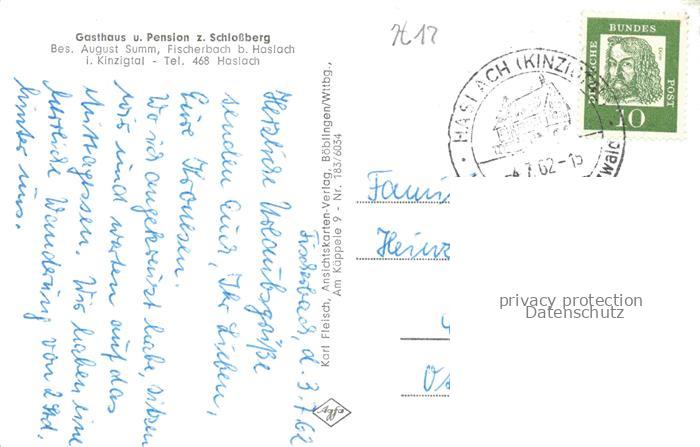 Gasthaus u. Pension z. Schloßberg
Bes. August Summ, Fischerbach b. Haslach
i. Kinzigtal - Tel. 468 Haslach
Fischerbach, d. 3.7.62
Herzliche Urlaubsgrüße
senden Euch, Ihr Lieben,
Eure
Wo ich angekreuzt habe, sitzen
wir und warten auf das
Mittagessen. Wir haben eine
herrliche Wanderung von 2 Std.
hinter uns.
Karl Fleisch, Ansichtskarten-Verlag, Böblingen/Wttbg.,
Am Käppele 9 - Nr. 183/6034
HASLACH (KINZIG
4.7.62-15
wald
DEUTSCHE
BUNDES
POST
10
Fami
Heinz
privacy protection
Datenschutz